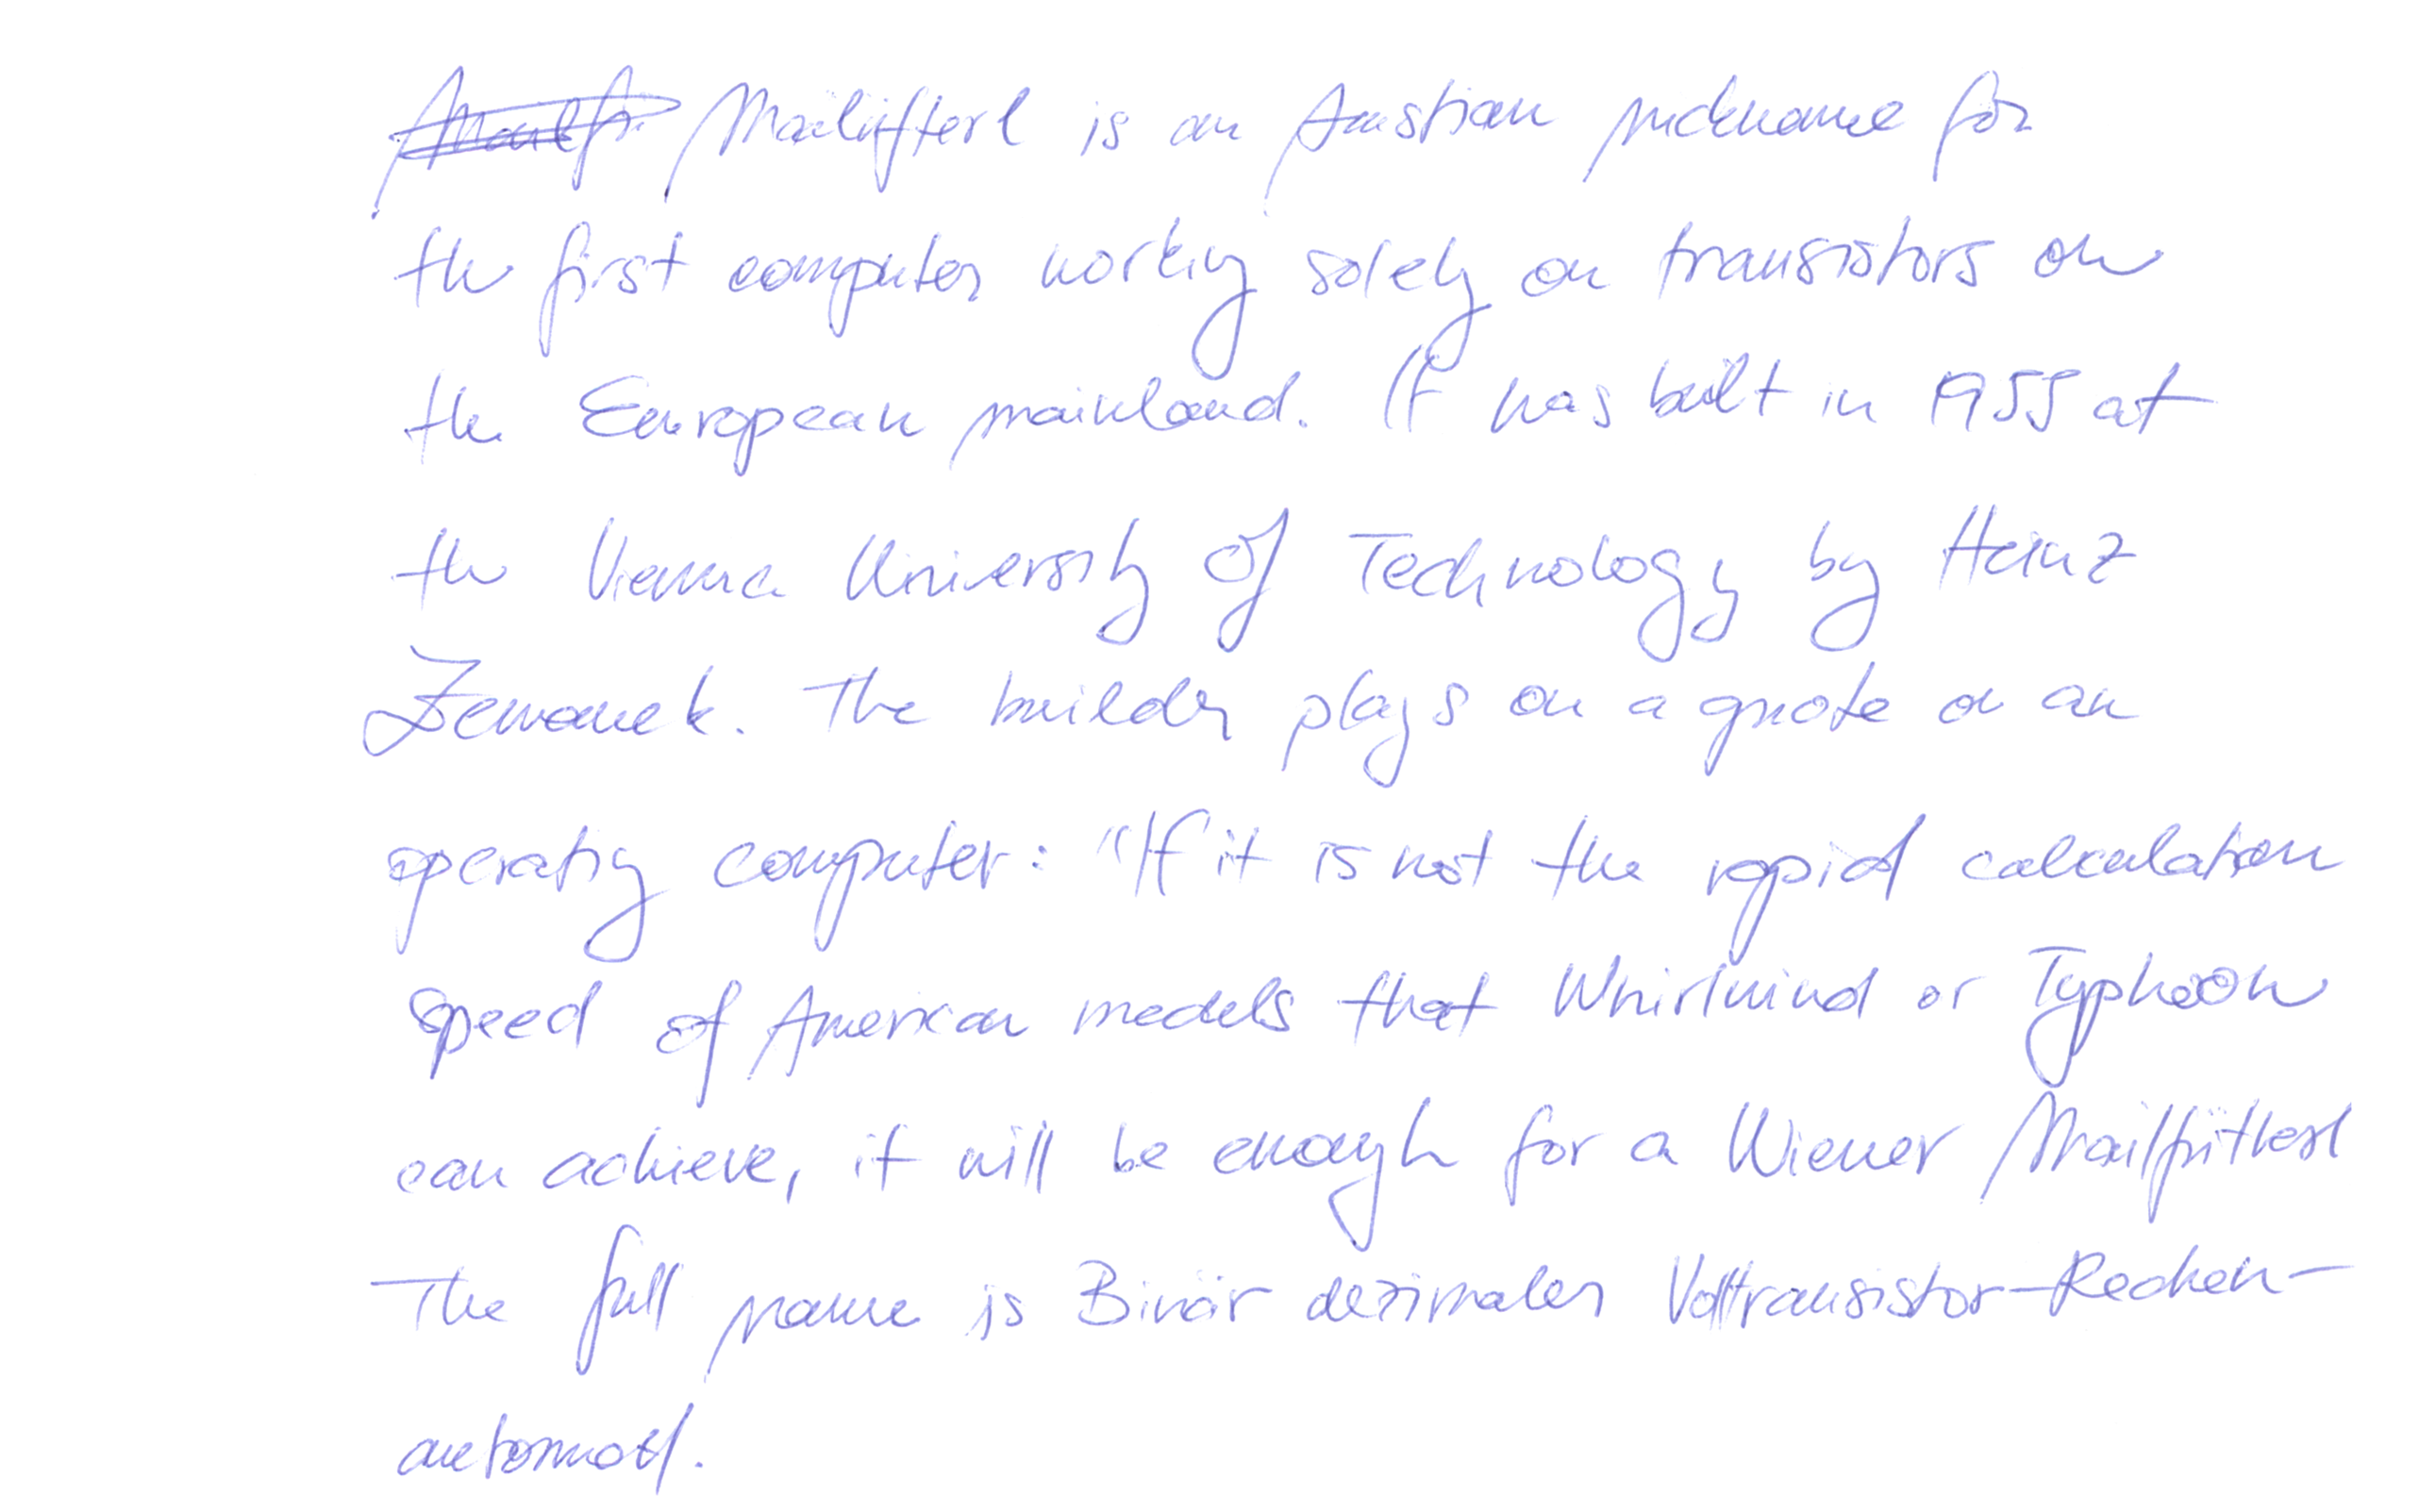 Mailüfterl is an Austrian nickname for
the first computer working solely on transistors on
the European mainland. It was built in 1955 at
the Vienna University of Technology by Heinz
Zemanek. The builder plays on a quote on an
operating computer: "If it is not the rapid calculation
speed of American models that Whirlwind or Typhoon
can achieve, it will be enough for a Wiener Mailfüterl
The full name is Binär dezimaler Volltransistor-Rechen-
automat.